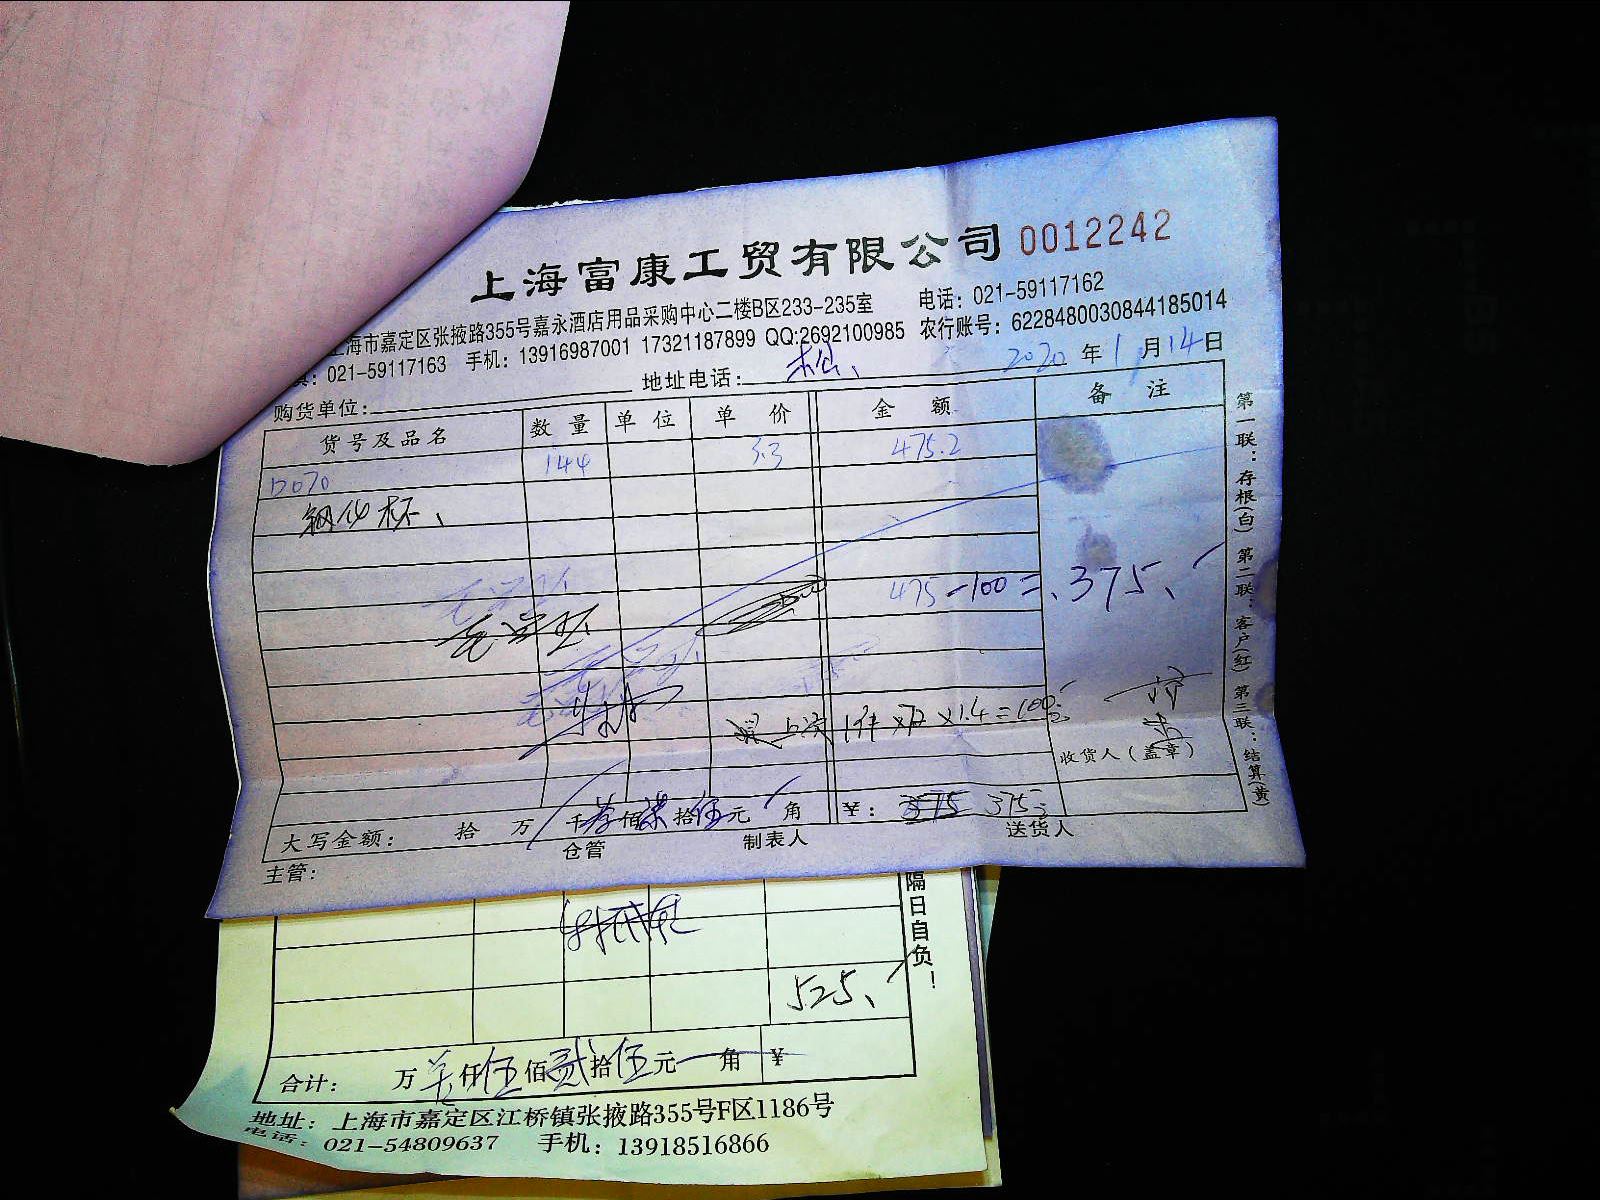 上海富康工贸有限公司 0012242
海市嘉定区张掖路355号嘉永酒店用品采购中心二楼B区233-235室 电话：021-59117162
：021-59117163 手机：13916987001 17321187899 QQ:2692100985 农行账号：6228480030844185014
购货单位： 地址电话： 2020年1月14日
货号及品名 数量 单位 单价 金额 备注
D070 144 3.3 475.2
钢化杯、
475-100=375、
1件×72×1.4=100
收货人（盖章）
大写金额： 拾 万 千叁佰柒拾伍元 角 ￥： 375
主管： 仓管 制表人 送货人
第一联：存根(白) 第二联：客户(红) 第三联：结算(黄)
隔日自负！
525、
合计： 万 仟伍佰贰拾伍元 角 ￥
地址：上海市嘉定区江桥镇张掖路355号F区1186号
电话：021-54809637 手机：13918516866